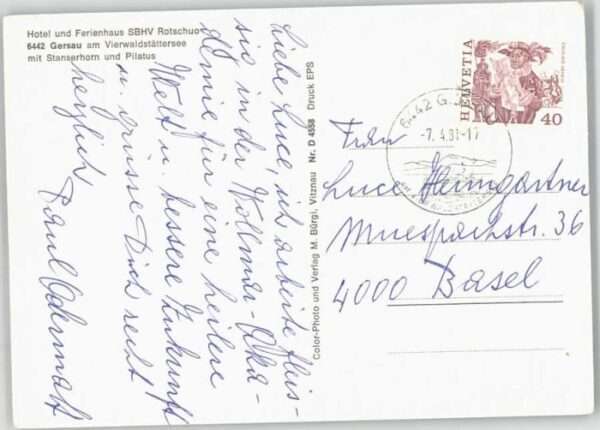 Hotel und Ferienhaus SBHV Rotschuo
6442 Gersau am Vierwaldstättersee
mit Stanserhorn und Pilatus
Liebe Luce, ich arbeite fleis-
sig in der Vollmar-Aka-
demie für eine heitere
Welt u. bessere Zukunft
u. grüsse Dich recht
herzlich
Paul
Color-Photo und Verlag M. Bürgi, Vitznau Nr. D 4558 Druck EPS
HELVETIA
40
6442 G
-7.4.81-17
Frau
Luce Heimgartner
Muespacherstr. 36
4000 Basel